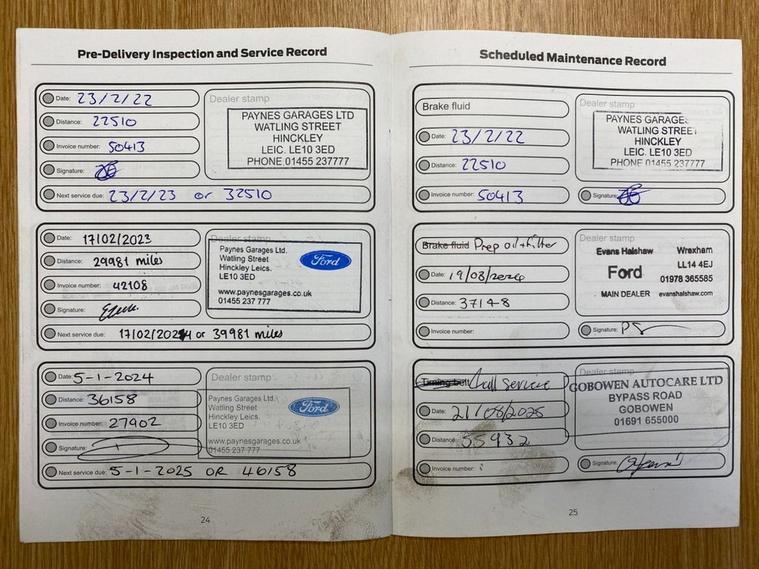 Pre-Delivery Inspection and Service Record
Date: 23/2/22
Distance: 22510
Invoice number: 50413
Signature:
Next service due: 23/2/23 or 32510
Dealer stamp
PAYNES GARAGES LTD
WATLING STREET
HINCKLEY
LEIC. LE10 3ED
PHONE 01455 237777
Date: 17/02/2023
Distance: 29981 miles
Invoice number: 42108
Signature:
Next service due: 17/02/2024 or 39981 miles
Dealer stamp
Paynes Garages Ltd.
Watling Street
Hinckley Leics.
LE10 3ED
www.paynesgarages.co.uk
01455 237 777
Ford
Date: 5-1-2024
Distance: 36158
Invoice number: 27902
Signature:
Next service due: 5-1-2025 OR 46158
Dealer stamp
Paynes Garages Ltd.
Watling Street
Hinckley Leics.
LE10 3ED
www.paynesgarages.co.uk
01455 237 777
Ford
24
Scheduled Maintenance Record
Brake fluid
Date: 23/2/22
Distance: 22510
Invoice number: 50413
Dealer stamp
PAYNES GARAGES
WATLING STREET
HINCKLEY
LEIC. LE10 3ED
PHONE 01455 237777
Signature:
Brake fluid Prep oil + filter
Date: 19/08/2024
Distance: 37148
Invoice number:
Dealer stamp
Evans Halshaw Wrexham
Ford LL14 4EJ
01978 365585
MAIN DEALER evanshalshaw.com
Signature: PS
Timing belt full service
Date: 21/08/2025
Distance: 55932
Invoice number:
Dealer stamp
GOBOWEN AUTOCARE LTD
BYPASS ROAD
GOBOWEN
01691 655000
Signature:
25